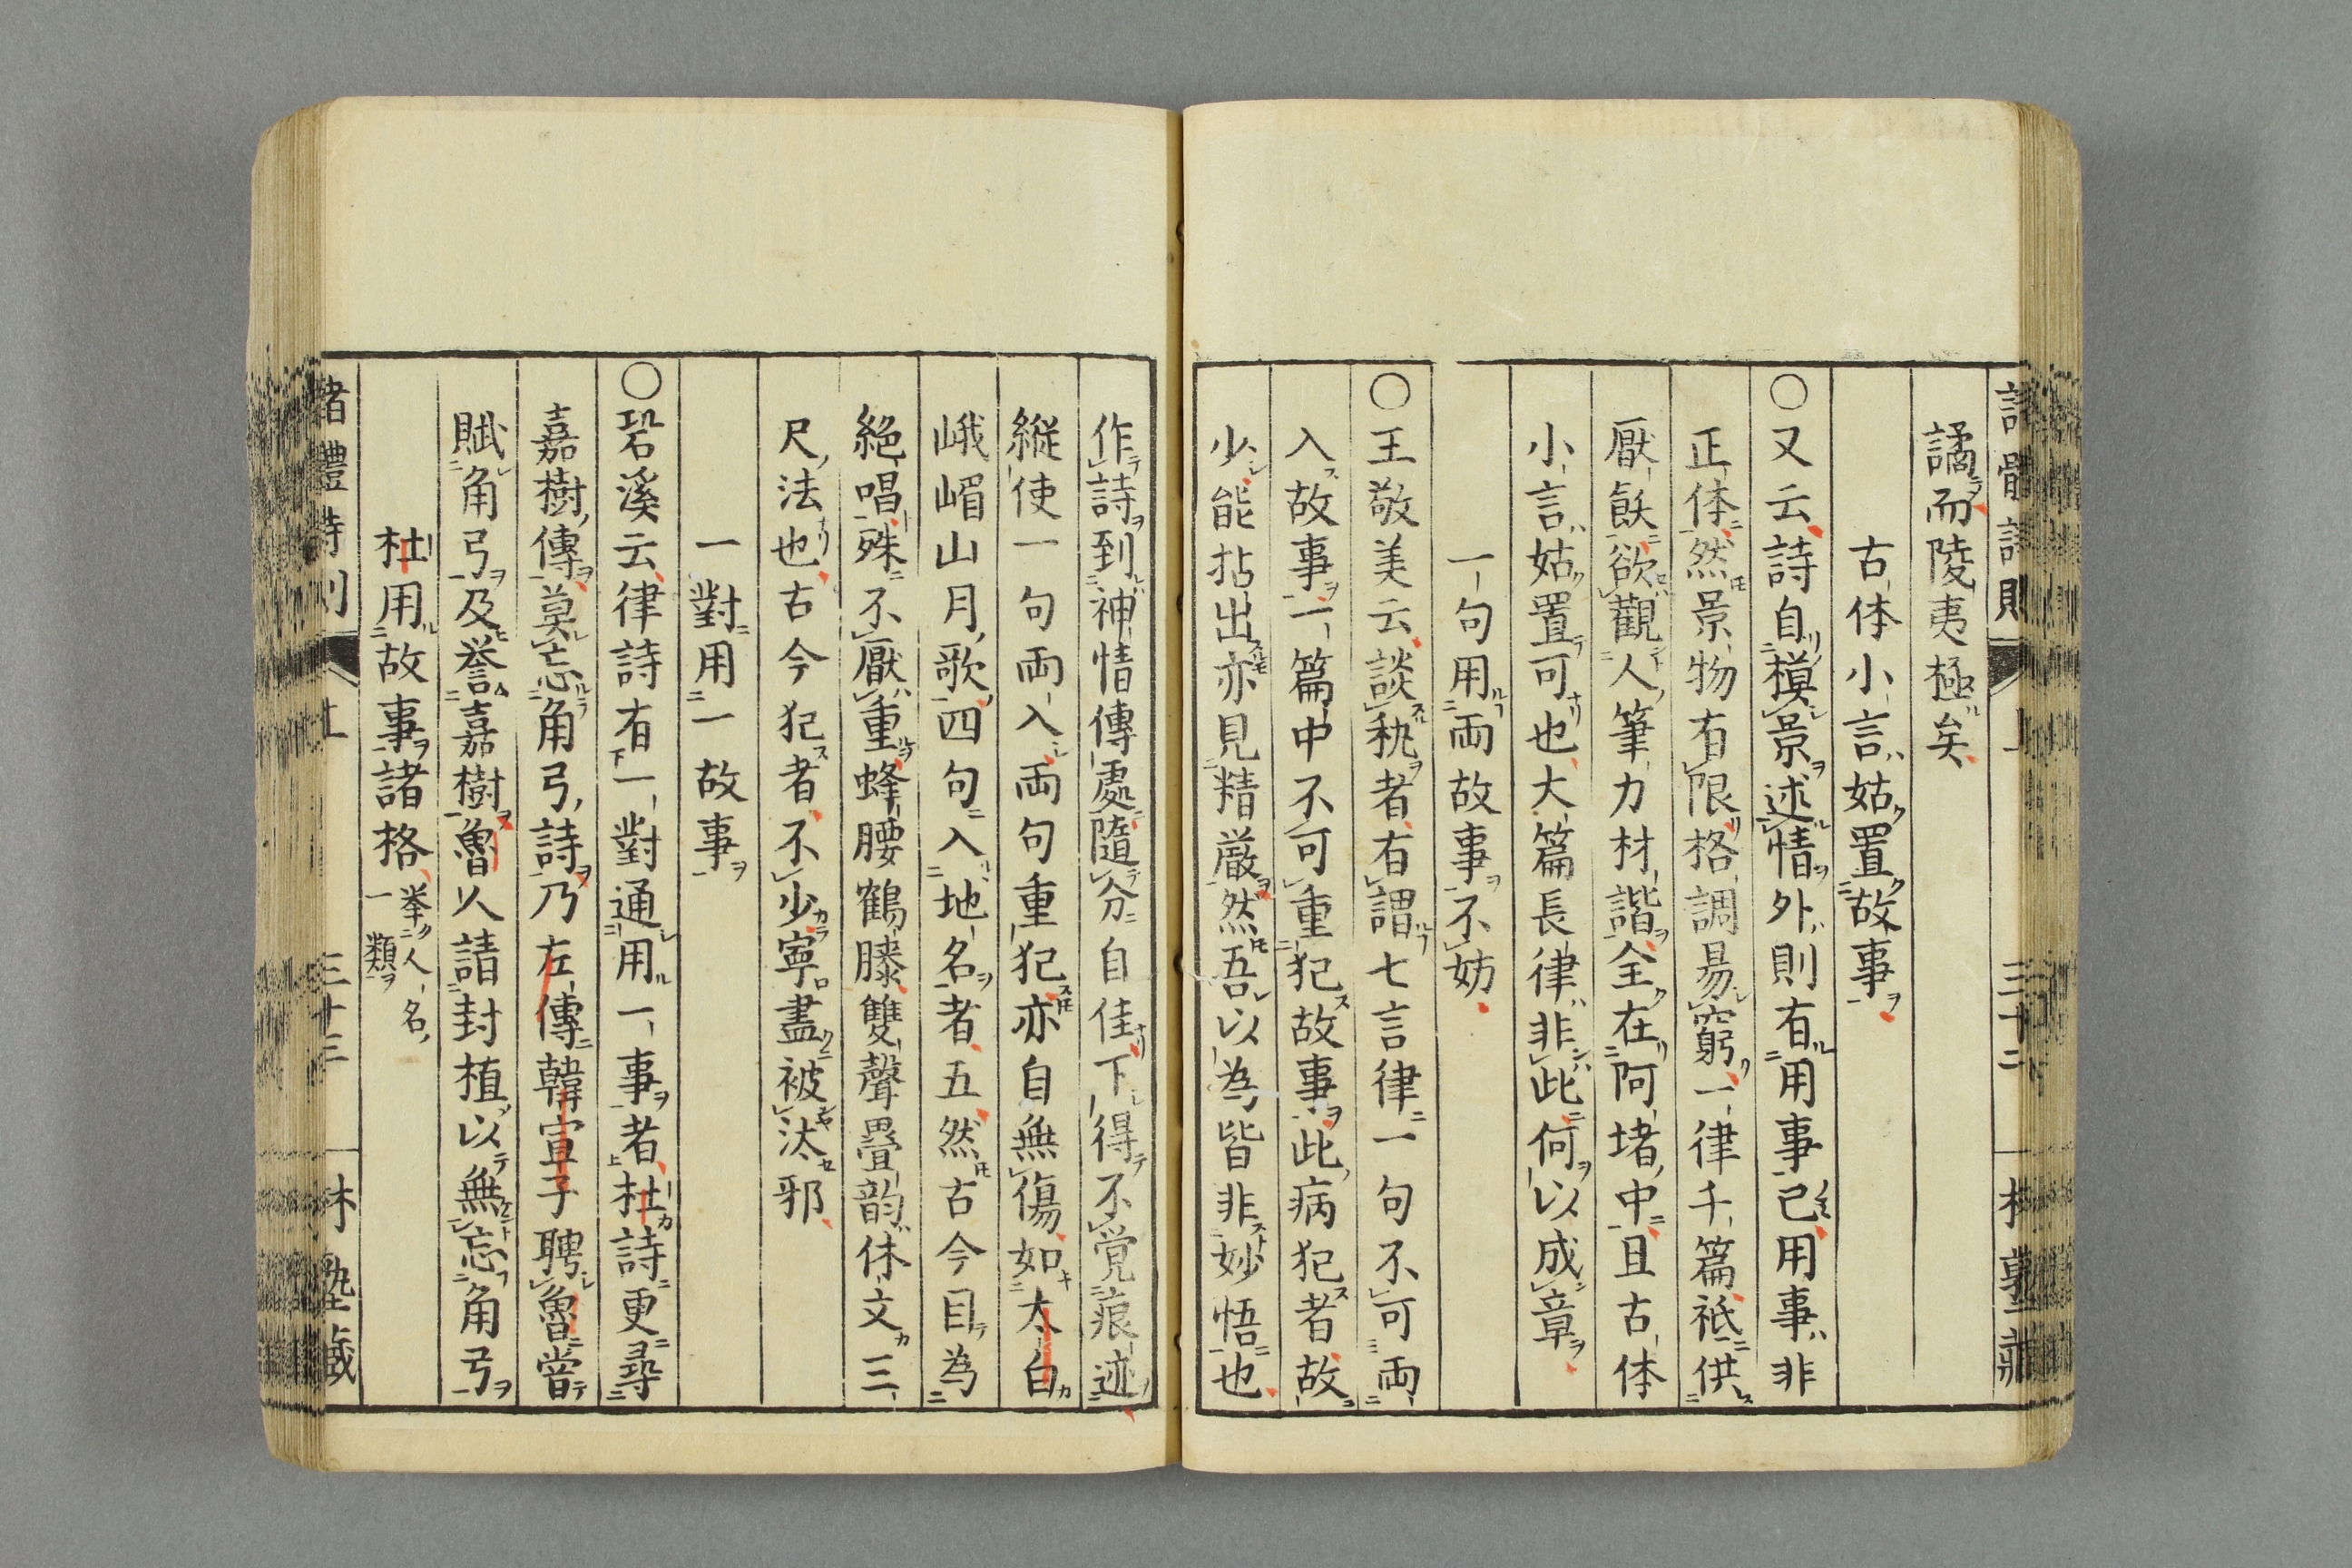 譎而陵夷極矣
古体小言姑置故事
○又云詩自模景述情外則有用事已用事非
正体然景物有限格調易窮一律千篇祗供
厭飫欲觀人筆力材諧全在阿堵中且古体
小言姑置可也大篇長律非此何以成章
一句用両故事不妨
○王敬美云談秇者有謂七言律一句不可両
入故事一篇中不可重犯故事此病犯者故
少能拈出亦見精厳然吾以為皆非妙悟也
作詩到神情傳處隨分自佳下得不覚痕迹
縦使一句両入両句重犯亦自無傷如太白
峨嵋山月歌四句入地名者五然古今目為
絶唱殊不厭重蜂腰鶴膝雙聲疊韵休文三
尺法也古今犯者不少寧盡被汰邪
一對用一故事
○䂬溪云律詩有一對通用一事者杜詩更尋
嘉樹傳莫忘角弓詩乃左傳韓宣子聘魯嘗
賦角弓及誉嘉樹魯人請封植以無忘角弓
杜用故事諸格 挙人名一類
諸體詩則 上 三十三 林塾藏